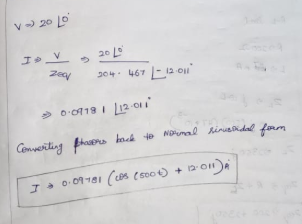 V ⇒ 20 ∠0°
I ⇒ V/Zeq ⇒ 20 ∠0° / 204.467 ∠-12.011°
⇒ 0.09781 ∠12.011°
Converting phasors back to Normal sinusoidal form
I ⇒ 0.09781 (cos (500t) + 12.011) A